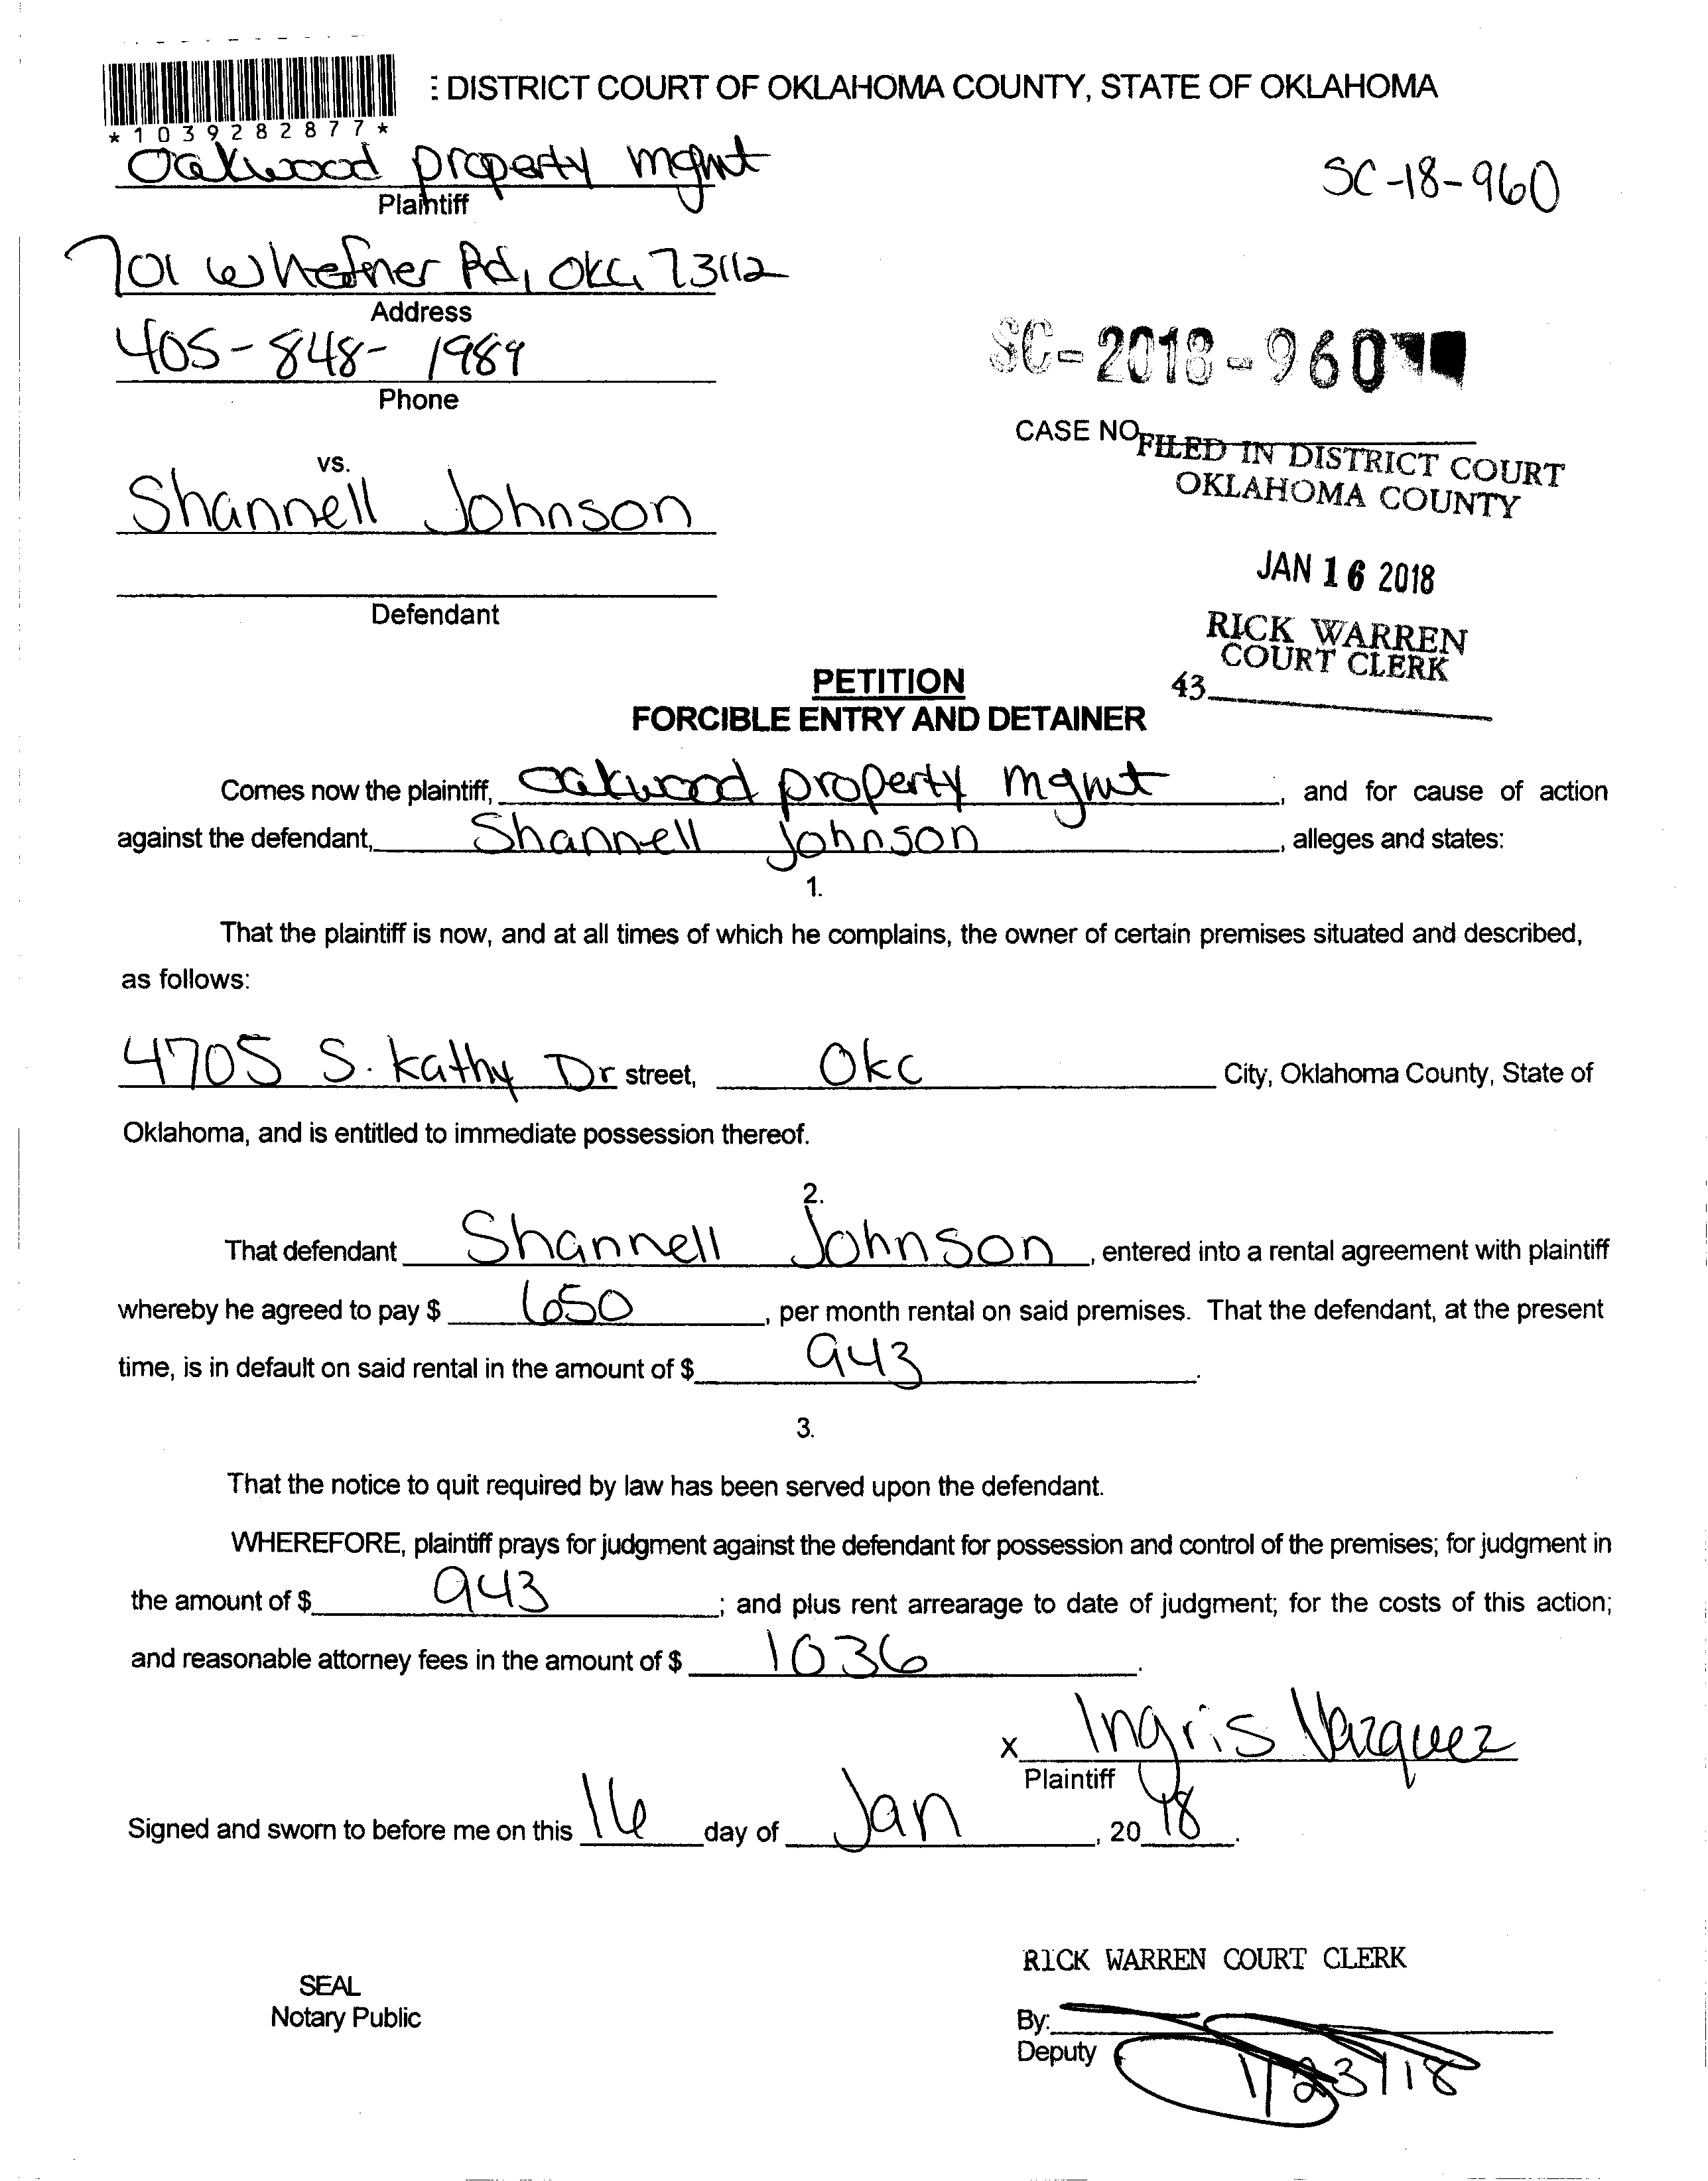 : DISTRICT COURT OF OKLAHOMA COUNTY, STATE OF OKLAHOMA
*1039282877*
Oakwood property mgmt
Plaintiff
SC-18-960
701 W hefner Rd, OKC, 73112
Address
405-848-1989
Phone
SC-2018-960
CASE NO.
FILED IN DISTRICT COURT
OKLAHOMA COUNTY
vs.
Shannell Johnson
Defendant
JAN 16 2018
RICK WARREN
COURT CLERK
43
PETITION
FORCIBLE ENTRY AND DETAINER
Comes now the plaintiff, Oakwood property mgmt, and for cause of action
against the defendant, Shannell Johnson, alleges and states:
1.
That the plaintiff is now, and at all times of which he complains, the owner of certain premises situated and described,
as follows:
4705 S. Kathy Dr street, OKC City, Oklahoma County, State of
Oklahoma, and is entitled to immediate possession thereof.
2.
That defendant Shannell Johnson, entered into a rental agreement with plaintiff
whereby he agreed to pay $ 650, per month rental on said premises. That the defendant, at the present
time, is in default on said rental in the amount of $ 943.
3.
That the notice to quit required by law has been served upon the defendant.
WHEREFORE, plaintiff prays for judgment against the defendant for possession and control of the premises; for judgment in
the amount of $ 943; and plus rent arrearage to date of judgment; for the costs of this action;
and reasonable attorney fees in the amount of $ 1036.
x Ingris Vazquez
Plaintiff
Signed and sworn to before me on this 16 day of Jan, 2018.
RICK WARREN COURT CLERK
SEAL
Notary Public
By:
Deputy
1/23/18